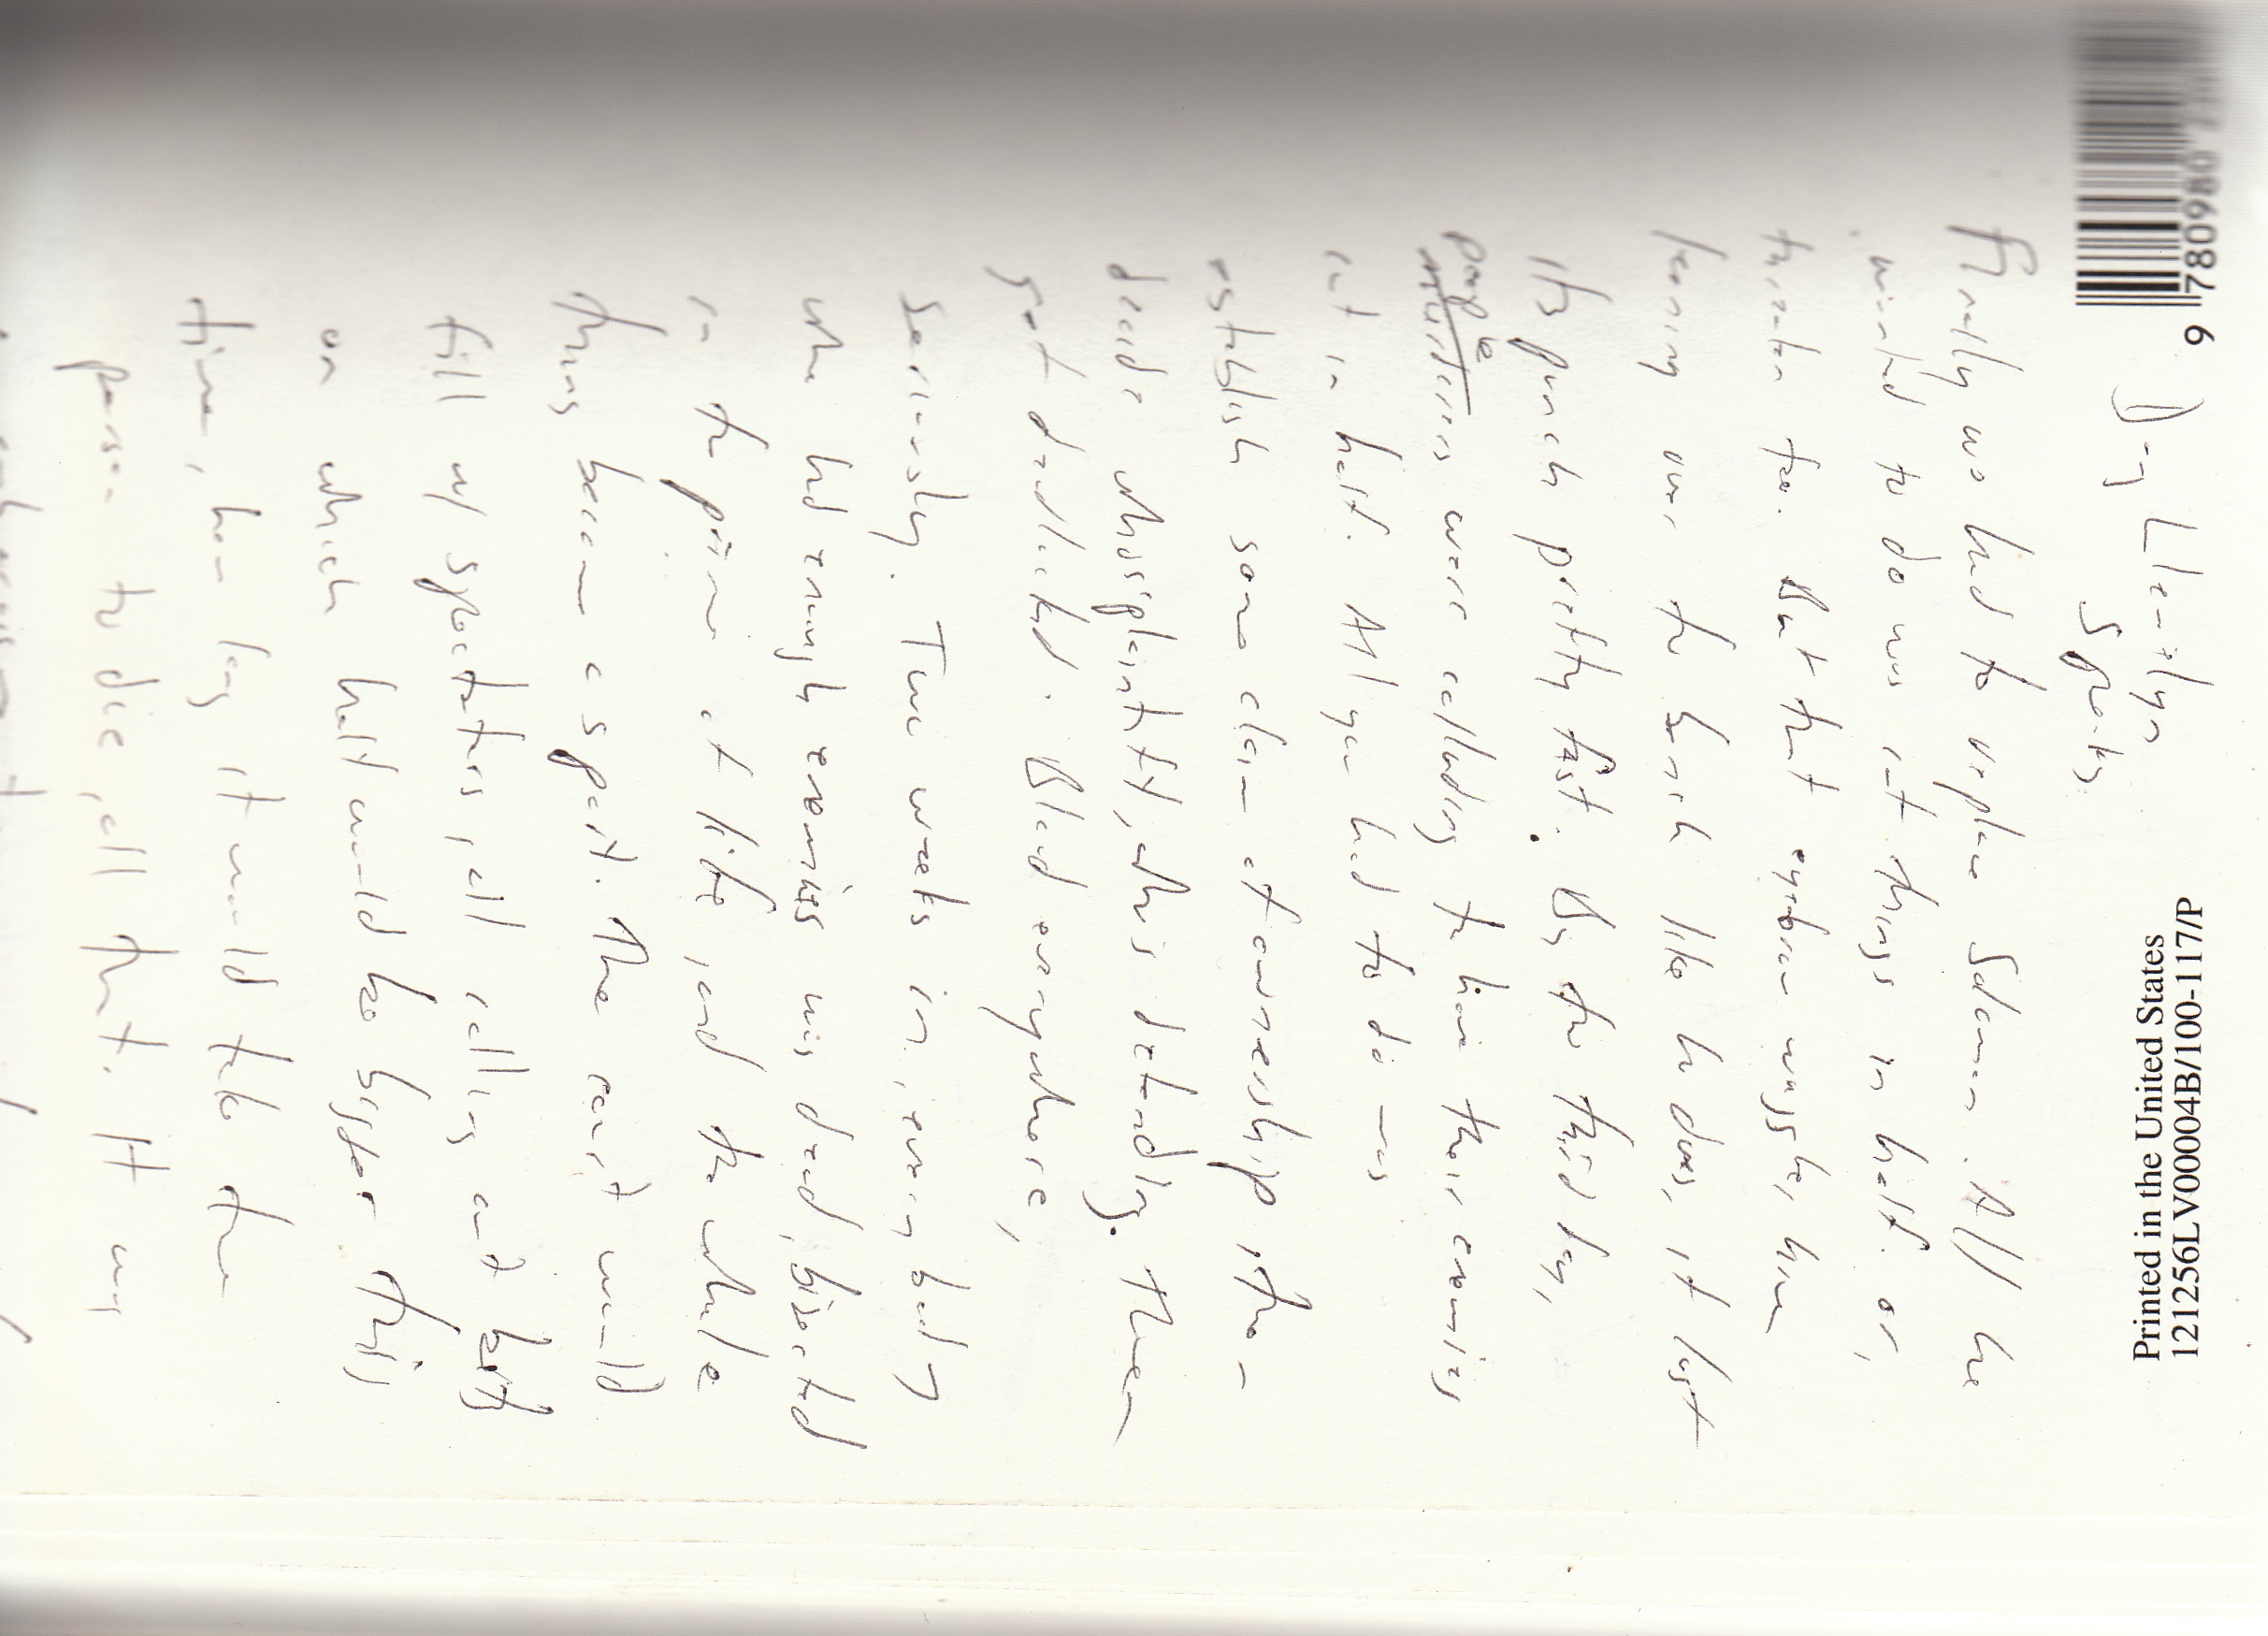 9 780980
Printed in the United States
121256LV00004B/100-117/P
Dry Llewellyn
Speaks:
Finally we had to replace Solomon. All he
wanted to do was cut things in half. or,
threaten to. But that eyebrow waggle, him
leaning over the bench like he does, it lost
its punch pretty fast. By the third day,
people were colluding to have their enemies
cut in half. All you had to do was
establish some claim of ownership, then
decide whos plaintiff, whos defending. Then
get deadlocked. Blood everywhere,
Seriously. Two weeks in, everybody
who had enough enemies was dead, bisected
in the prime of life, and the whole
thing became a sport. The court would
fill w/ spectators, all calling out bets
on which half would be bigger this
time, how long it would take the
person to die, all that. It was